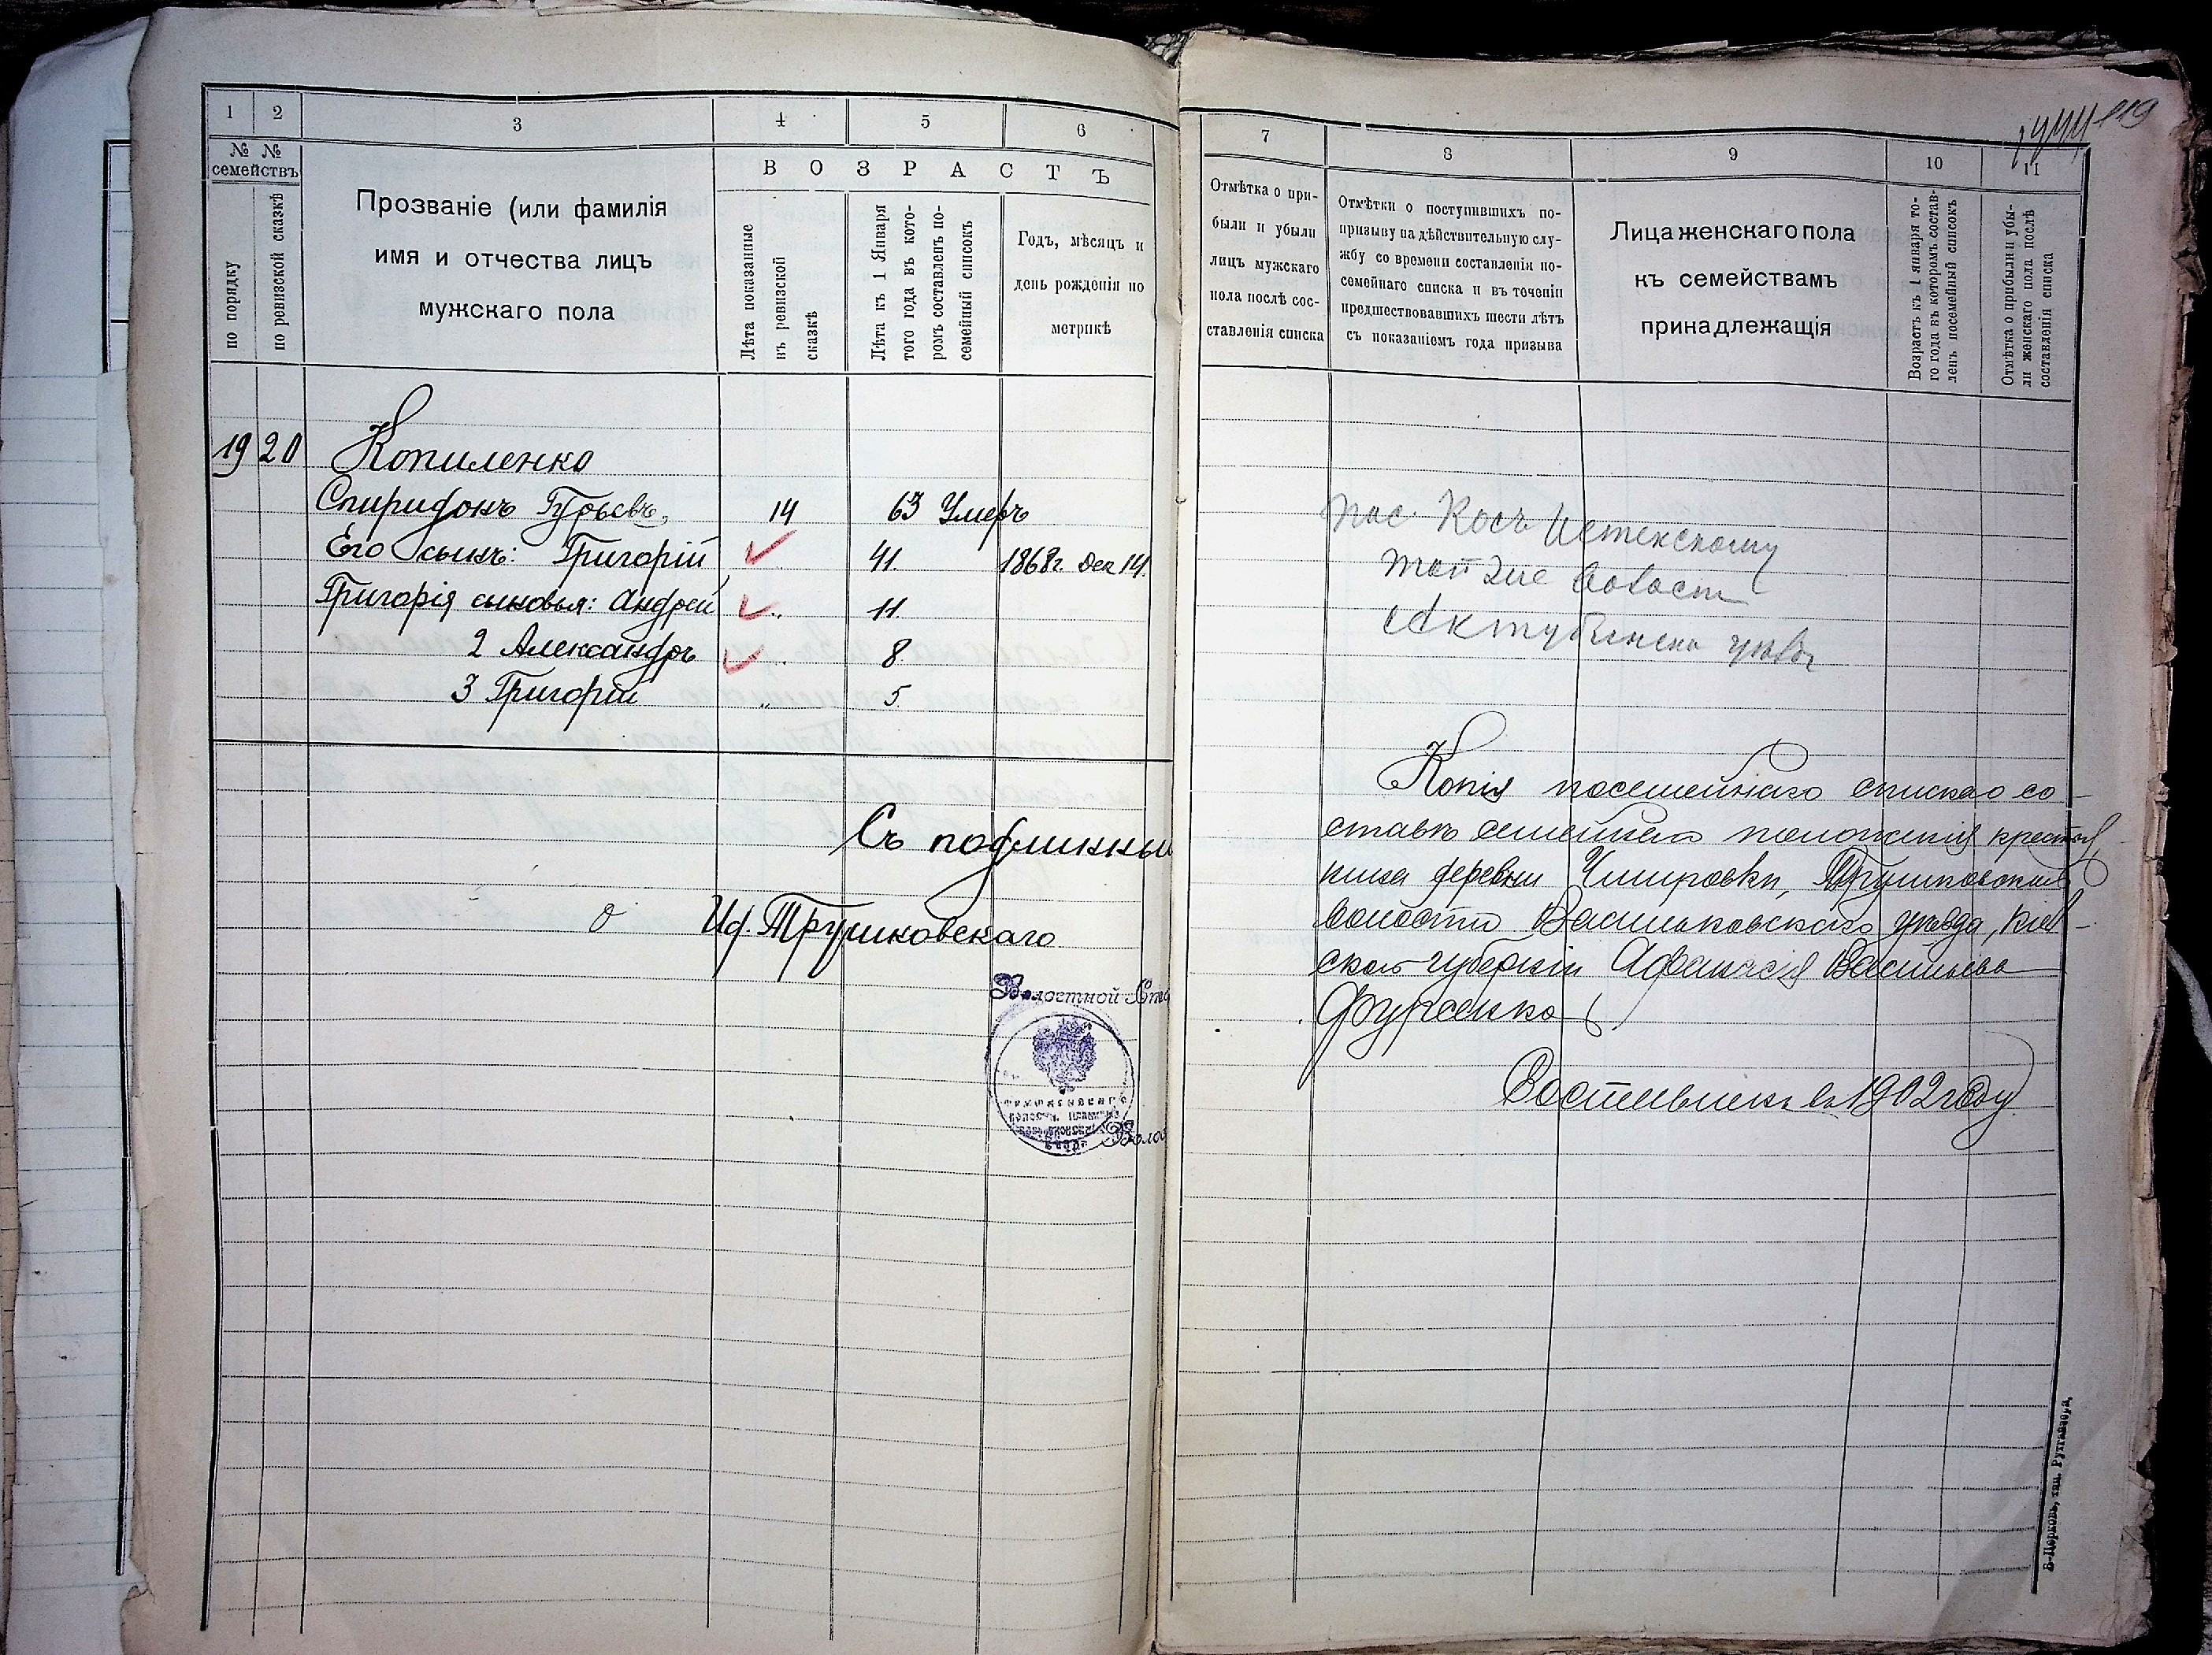 1
2
3
4
5
6
№ №
семействъ
по порядку
по ревизской сказкѣ
Прозваніе (или фамилія
имя и отчества лицъ
мужскаго пола
ВОЗРАСТЪ
Лѣта показанные
въ ревизской
сказкѣ
Лѣта къ 1 Января
того года въ кото-
ромъ составленъ по-
семейный списокъ
Годъ, мѣсяцъ и
день рожденія по
метрикѣ
19 20 Копиленко
Спиридонъ Гурьевъ 14 63 Умеръ
Его сынъ: Григорій 41. 1868г. Дек 14.
Григорія сыновья: Андрей 11.
2 Александръ 8.
3 Григорій „ 5
Съ подлинны
Иф. Трушковскаго
Волостной Ста
Воло
7
8
9
10
11
119
Отмѣтка о при-
были и убыли
лицъ мужскаго
пола послѣ сос-
тавленія списка
Отмѣтки о поступившихъ по-
призыву на дѣйствительную слу-
жбу со времени составленія по-
семейнаго списка и въ теченіи
предшествовавшихъ шести лѣтъ
съ показаніемъ года призыва
Лица женскаго пола
къ семействамъ
принадлежащія
Возрастъ къ 1 января то-
го года въ которомъ состав-
ленъ посемейный списокъ
Отмѣтка о прибыли и убы-
ли женскаго пола послѣ
составленія списка
пос. Косъ Истекскому
волости
Копія посемейнаго списка о со-
ставѣ семейнаго положенія крестья
нина деревни Чмировки, Трушковской
волости Васильковскаго уѣзда, Кіев-
ской губерніи Афанасія Васильева
Фурсенко
въ 1902 году
Б-Церковь, тип. Рутгайзера,